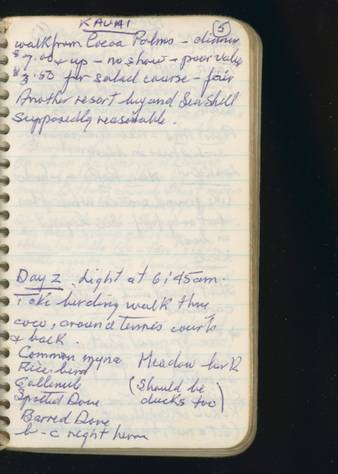 KAUAI (5)
walk from Cocoa Palms – dinner
$7.00 & up – no show – poor value
$3.50 for salad course – fair
Another resort beyond Sea Shell
supposedly reasonable.
Day 2. Light at 6:45am.
Take birding walk thru
coco, around tennis courts
& back.
Common myna Meadow lark
Rice bird
Gallinule (Should be
Spotted Dove ducks too)
Barred Dove
b-c night heron